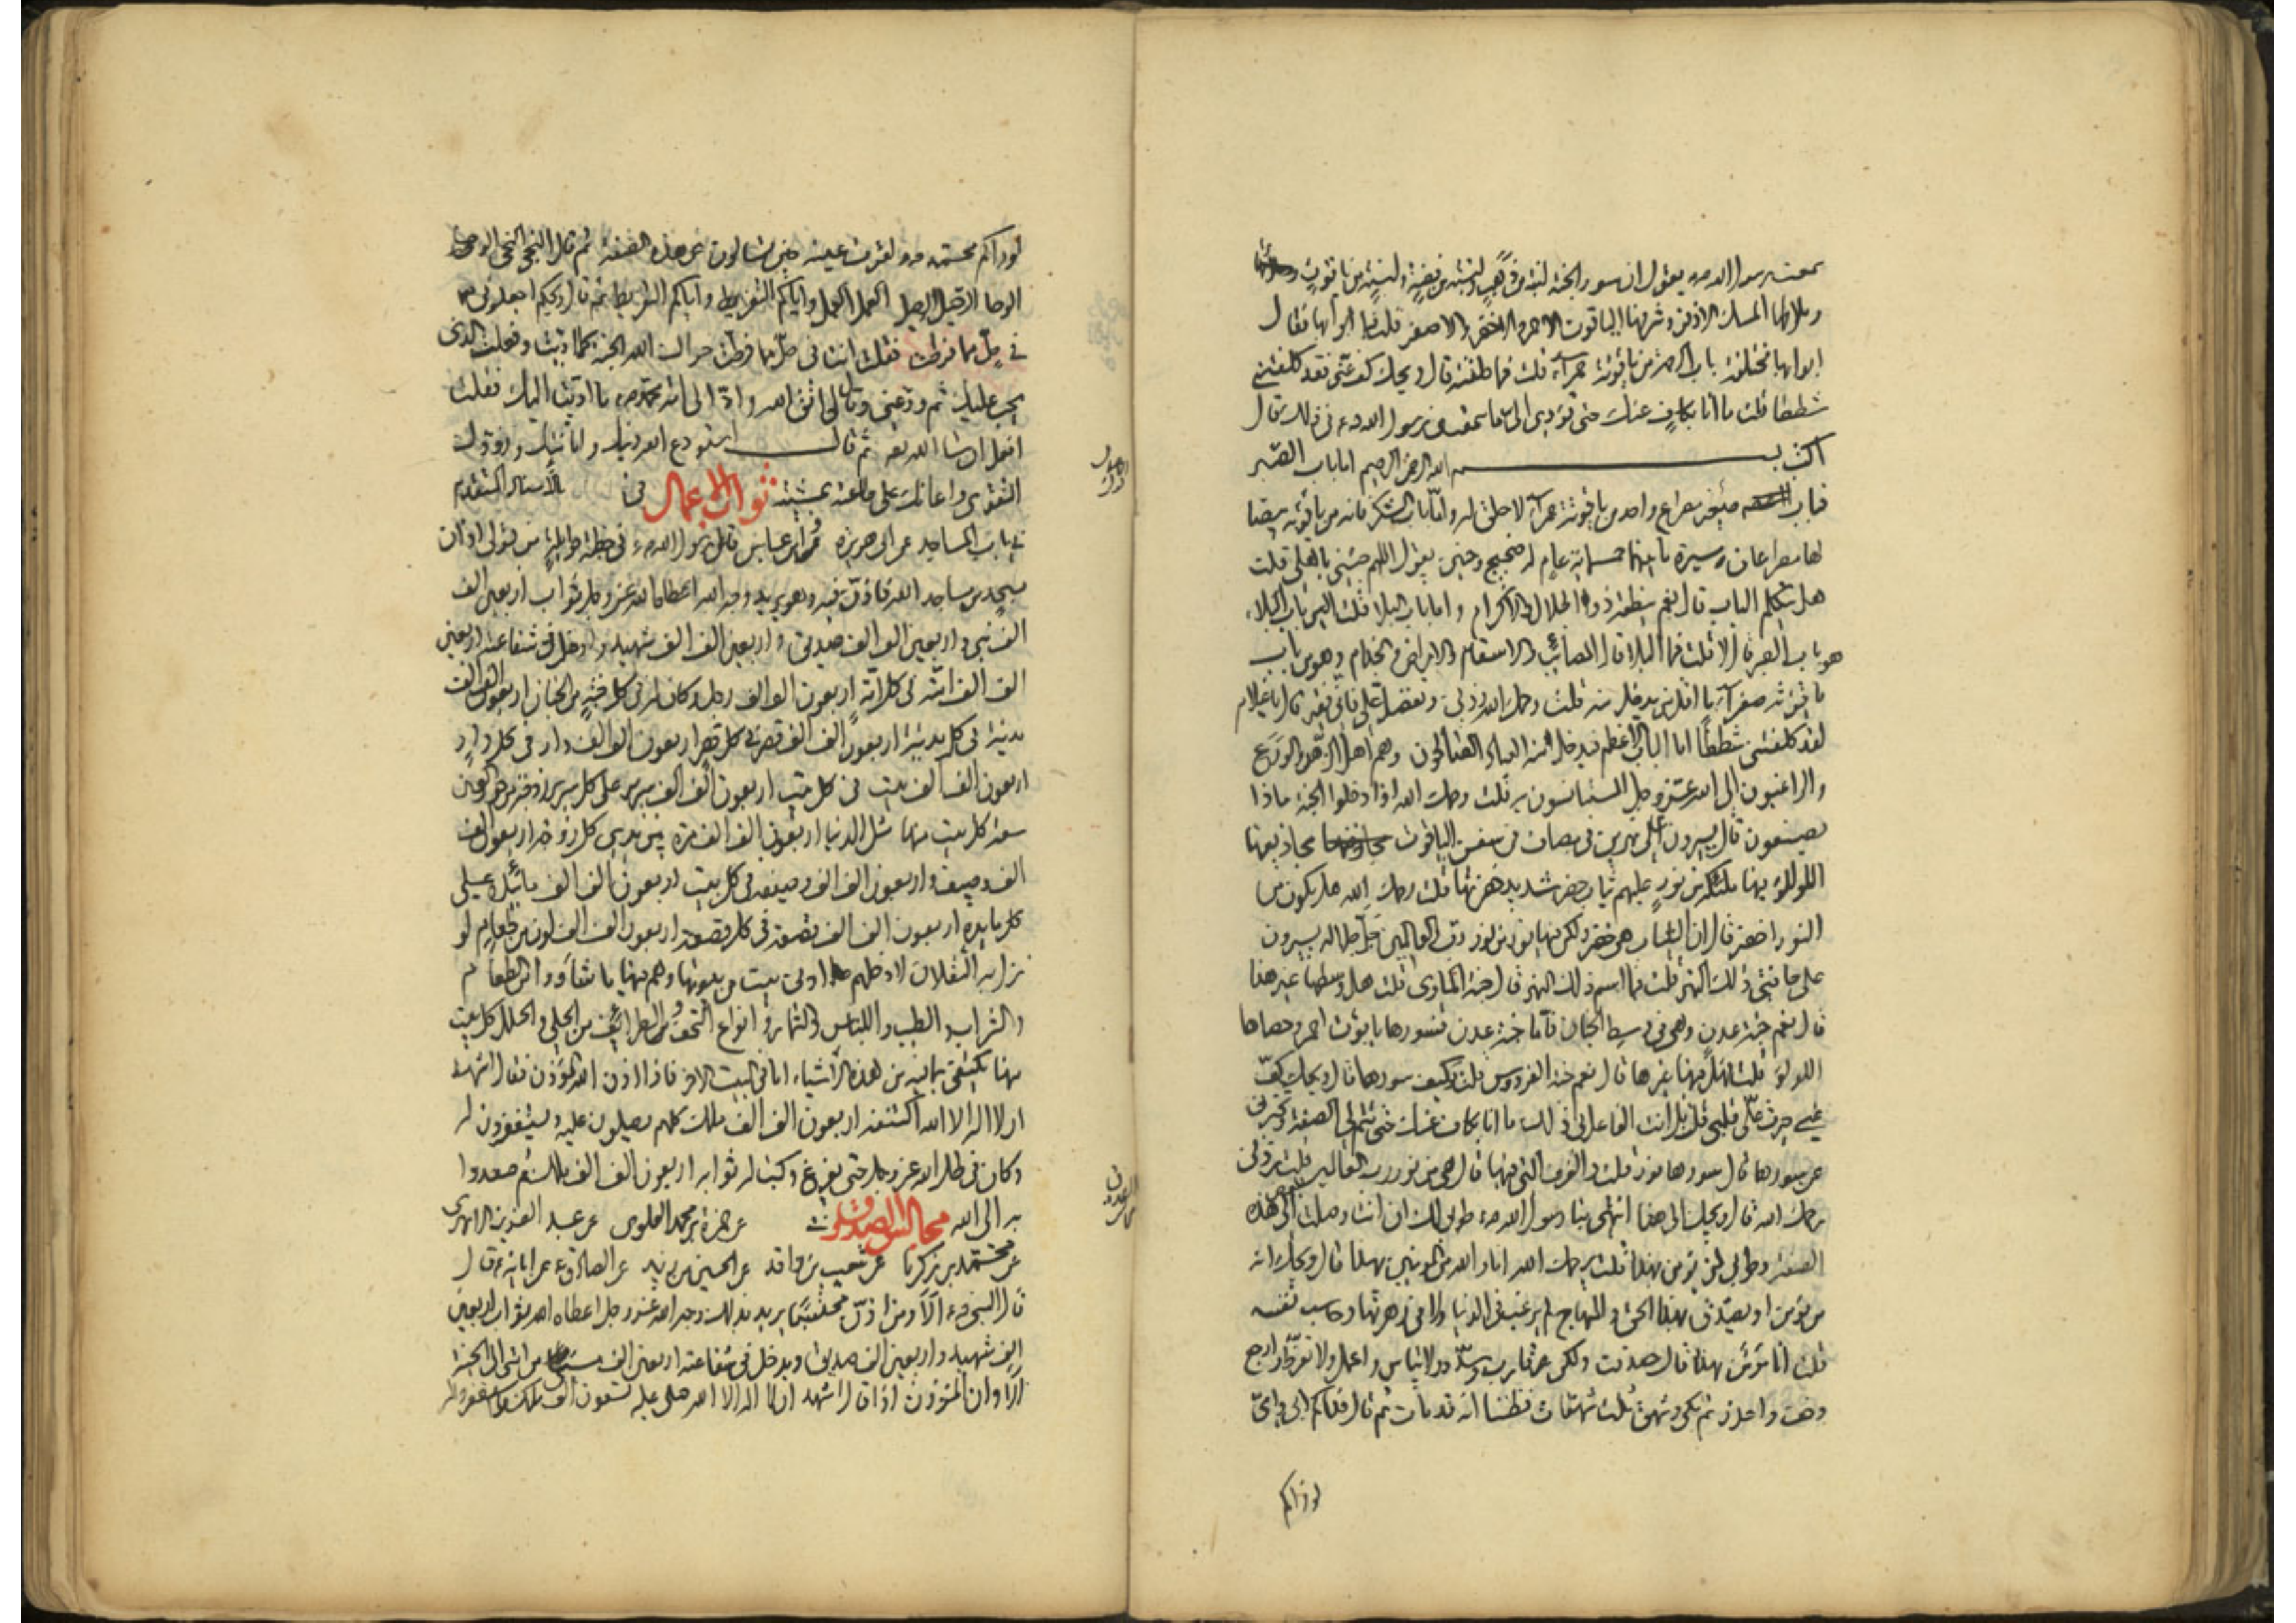 سمعت رسول الله ص يقول ان سور الجنة لبنة من ذهب ولبنة من فضة ولبنة من ياقوت
وملاطها المسك الاذفر وشرفها الياقوت الاحمر والاخضر والاصفر قلت فما ابوابها فقال
ابوابها مختلفة باب الرحمة من ياقوتة حمراء قلت فما حلقته قال ويحك كف عني فقد كلفتني
شططا قلت ما انا بكاف عنك حتى تؤدي الي ما سمعت من رسول الله ص في ذلك قال
اكتب بسم الله الرحمن الرحيم اما باب الصبر
فباب صغير مصراع واحد من ياقوتة حمراء لا حلق له واما باب الشكر فانه من ياقوتة بيضا
لها مصراعان مسيرة ما بينهما خمسماية عام له ضجيج وحنين يقول اللهم جئني باهلي قلت
هل يتكلم الباب قال نعم ينطقه ذو الجلال والاكرام واما باب البلا قلت اليس باب البلاء
هو باب الصبر قال لا قلت فما البلا قال المصائب والاسقام والامراض والجذام وهو من باب
ياقوتة صفراء ما اقل من يدخل منه قلت رحمك الله زدني وتفضل علي فاني فقير قال يا غلام
لقد كلفتني شططا اما الباب الاعظم فيدخل منه العباد الصالحون وهم اهل الزهد والورع
والراغبون الى الله عز وجل المستانسون به قلت رحمك الله اذا دخلوا الجنة ماذا
يصنعون قال يسيرون على نهرين في مصاف في سفن الياقوت مجاذيفها
اللؤلؤ فيها ملئكة من نور عليهم ثياب خضر شديد خضرتها قلت رحمك الله هل يكون من
النور اخضر قال ان الثياب هي خضر ولكن فيها نور من نور رب العالمين جل جلاله يسيرون
على حافتي ذلك النهر قلت فما اسم ذلك النهر قال جنة الماوى قلت هل وسطها غير هذا
قال نعم جنة عدن وهي في وسط الجنان فاما جنة عدن فسورها ياقوت احمر وحصاها
اللولؤ قلت فهل فيها غيرها قال نعم جنة الفردوس قلت وكيف سورها قال ويحك كف
عني جرحت علي قلبي قلت بل انت الفاعل بي ذلك ما انا بكاف عنك حتى تتم لي الصفة وتخبرني
عن سورها قال سورها نور قلت والغرف التي فيها قال هي من نور رب العالمين قلت زدني
رحمك الله قال ويحك الى هذا انتهى بنا رسول الله ص طوبى لك ان انت وصلت الى بعض هذه
الصفة وطوبى لمن يؤمن بهذا قلت يرحمك الله انا والله من المؤمنين بهذا قال ويحك انه
من يؤمن او يصدق بهذا الحق والمنهاج لم يرغب في الدنيا ولا في زهرتها وحاسب نفسه
قلت انا مؤمن بهذا قال صدقت ولكن قارب وسدد ولا تياس واعمل ولا تفرط وارج
وخف واحذر ثم بكى وشهق ثلث شهقات فظننا انه قد مات ثم قال فداكم ابي وامي
لو راكم
لو راكم محمد ص لقرت عينه حين تسالون عن هذه الصفة ثم قال النجا النجا الوحا
الوحا الرحيل الرحيل العمل العمل واياكم والتفريط واياكم والتفريط ثم قال ويحكم اجعلوني
في حل مما فرطت فقلت انت في حل مما فرطت جزاك الله الجنة كما اديت وفعلت الذي
يجب عليك ثم ودعني وقال لي اتق الله واد الى امة محمد ص ما اديت اليك فقلت
افعل ان شا الله تعه ثم قال استودع الله دينك وامانتك وزودك
التقوى واعانك على طاعته بمشيته ثواب الاعمال في الاسناد المتقدم
في باب المساجد عن ابي هريرة وابن عباس قال رسول الله ص في خطبة طويلة من تولى اذان
مسجد من مساجد الله فاذن فيه وهو يريد وجه الله اعطاه الله عز وجل ثواب اربعين الف
الف نبي واربعين الف الف صديق واربعين الف الف شهيد وادخل في شفاعته اربعين
الف الف امة في كل امة اربعون الف الف رجل وكان له في كل جنة من الجنان اربعون الف الف
مدينة في كل مدينة اربعون الف الف قصر في كل قصر اربعون الف الف دار في كل دار
اربعون الف الف بيت في كل بيت اربعون الف الف سرير على كل سرير زوجة من الحور العين
سعة كل بيت منها مثل الدنيا اربعون الف الف مرة بين يدي كل زوجة اربعون الف
الف وصيف واربعون الف الف وصيفة في كل بيت اربعون الف الف مائدة على
كل مايدة اربعون الف الف قصعة في كل قصعة اربعون الف الف لون من الطعام لو
نزل به الثقلان لادخلهم ادنى بيت من بيوتها وهم فيها ما شاؤوا من الطعام
والشراب والطيب واللباس والثمار وانواع التحف والطرائف من الحلي والحلل كل بيت
منها يكتفي بما فيه من هذه الاشياء عما في البيت الاخر فاذا اذن المؤذن فقال اشهد
ان لا اله الا الله اكتنفه اربعون الف الف ملك كلهم يصلون عليه ويستغفرون له
وكان في ظل الله عز وجل حتى يفرغ وكتب له ثوابه اربعون الف الف ملك ثم صعدوا
به الى الله مجالس الصدوق في عن حمزة بن محمد العلوي عن عبد العزيز الابهري
عن محمد بن زكريا عن شعيب بن واقد عن الحسين بن زيد عن الصادق ع عن ابائه ع قال
قال النبي ص الا ومن اذن محتسبا يريد بذلك وجه الله عز وجل اعطاه الله ثواب اربعين
الف شهيد واربعين الف صديق ويدخل في شفاعته اربعين الف مسيئ من امتي الى الجنة
الا وان المؤذن اذا قال اشهد ان لا اله الا الله صلى عليه تسعون الف ملك